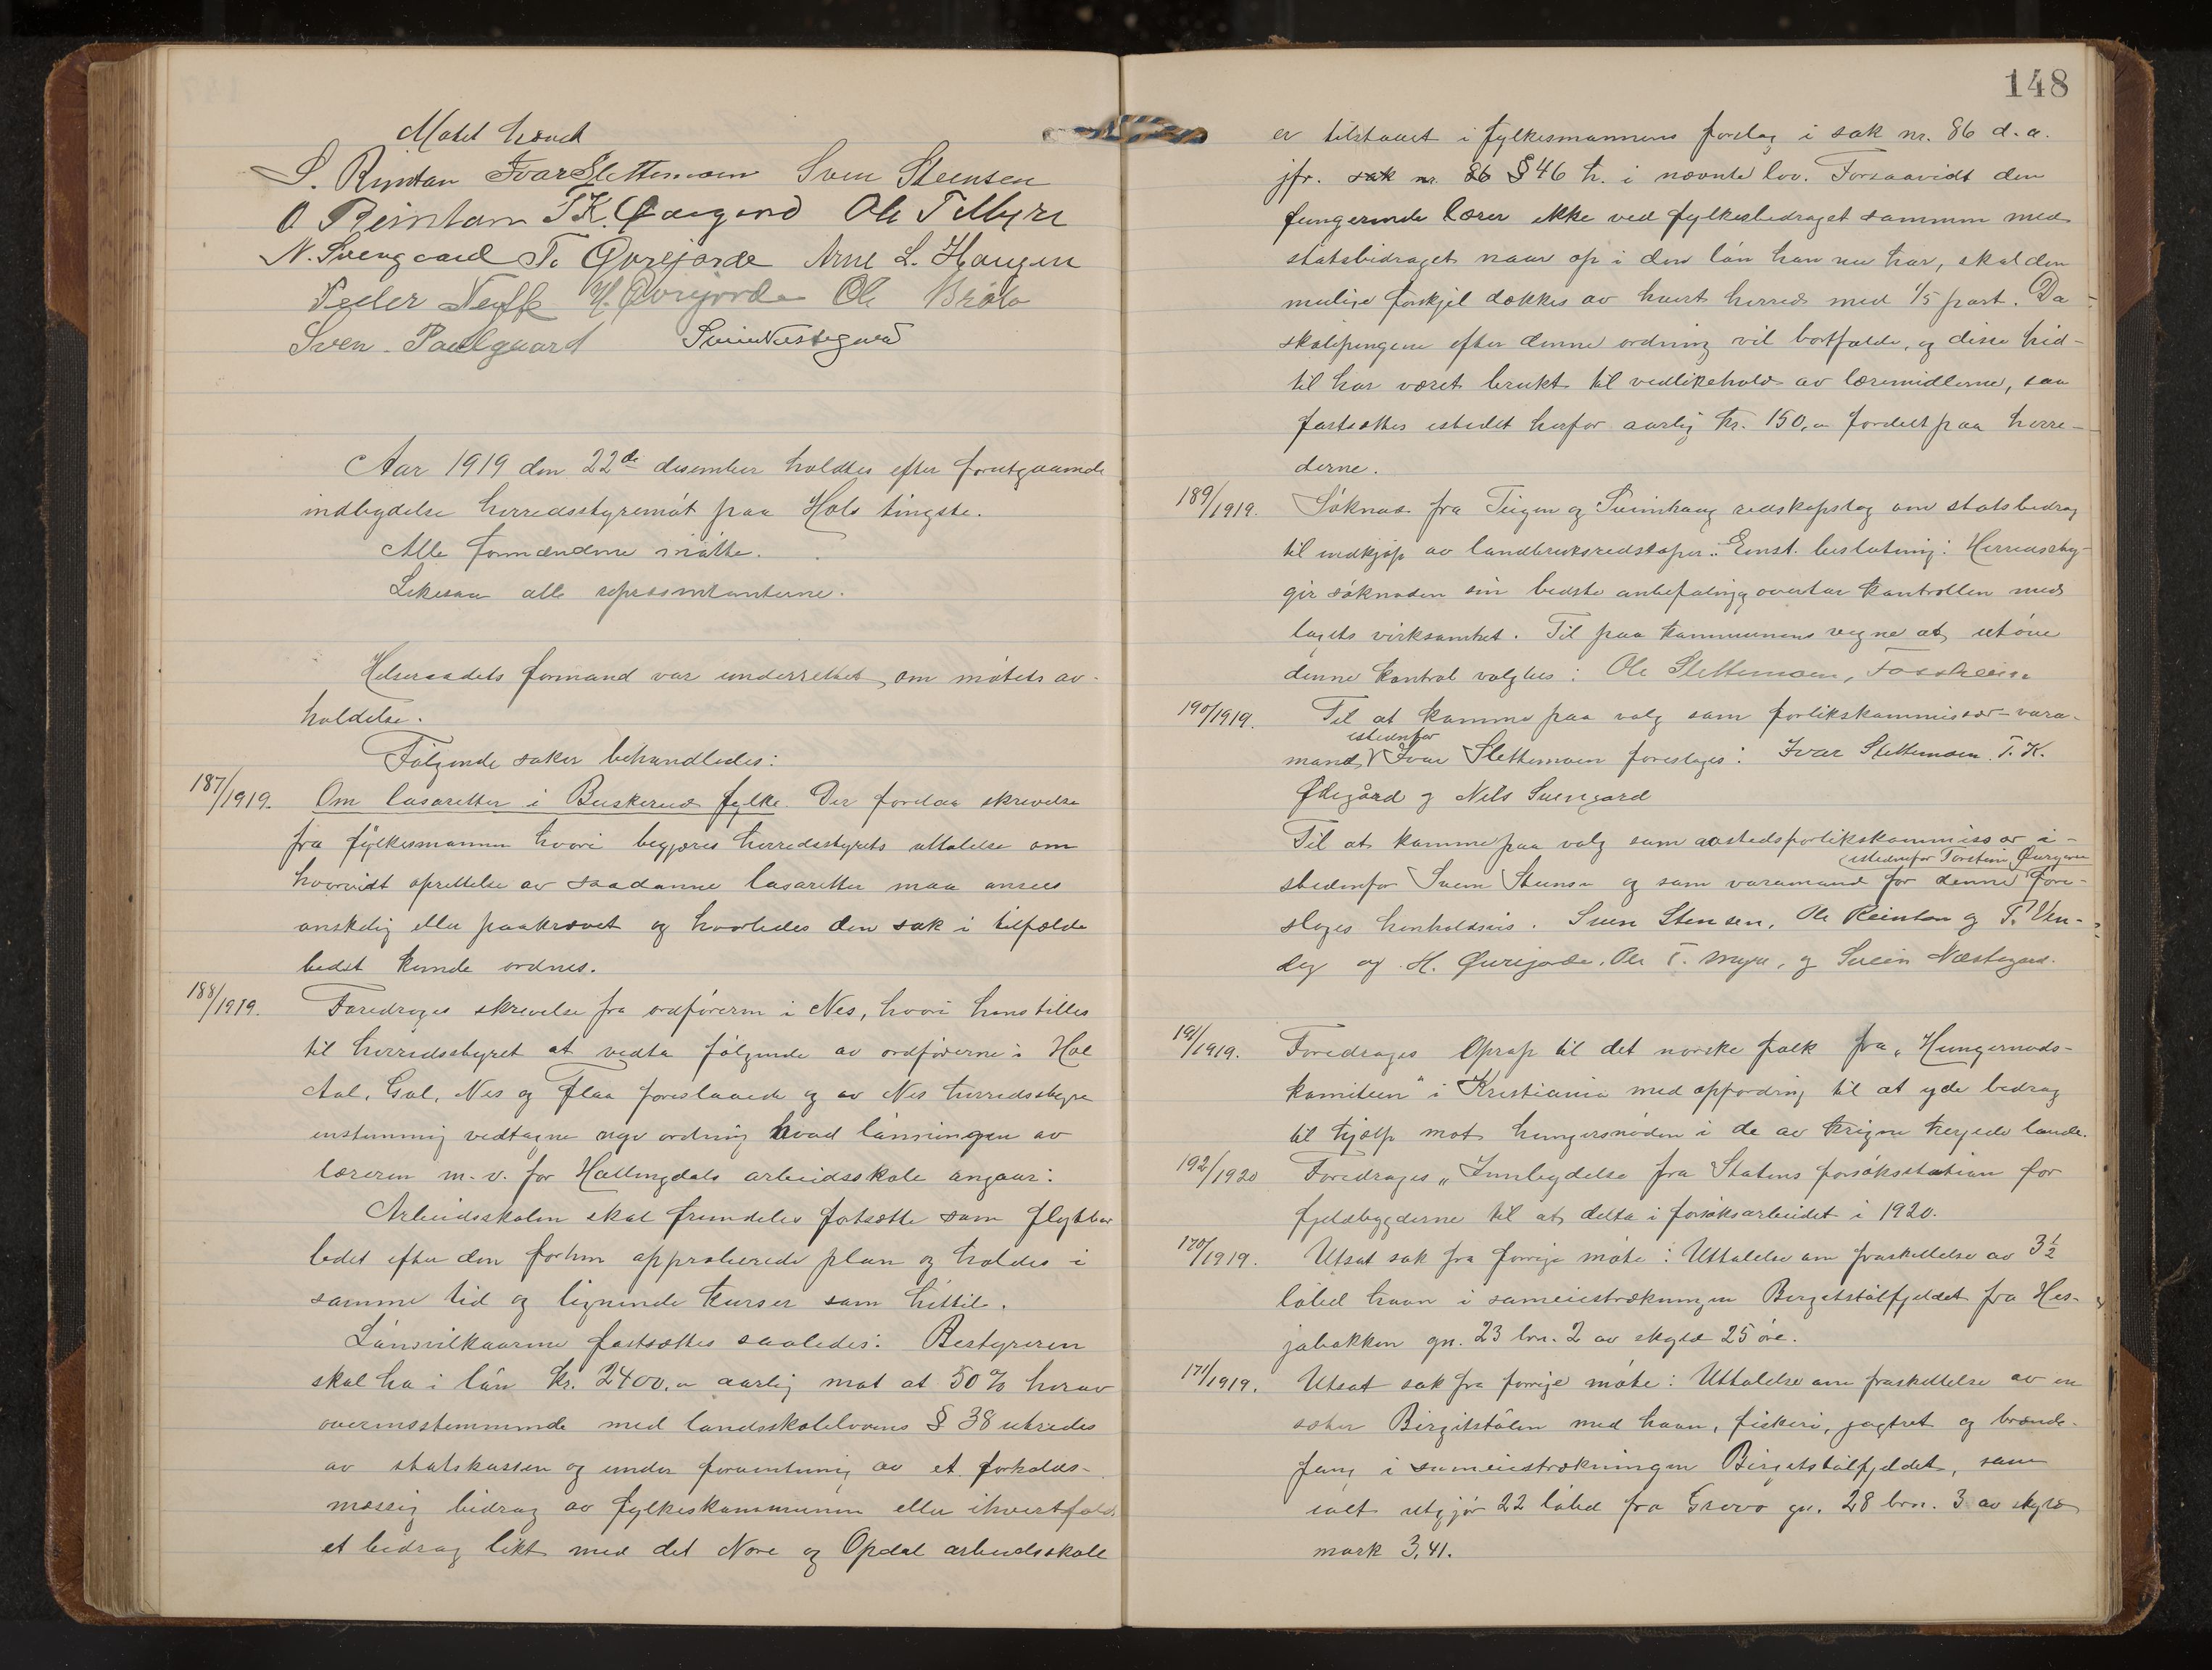 Møtet hævet
S. Rintan Ivar Slettemoen Sven Steensen
O Reintan T.K. Ødegaard Ole T Myre
N. Svengaard T. Øvrejorde Arne L. Haugen
Peder Teyffe H. Øvrejorde Ole Bråto
Sven Paulgaard Svein Nestegard
Aar 1919 den 22de desember holdtes efter forutgaaende
indbydelse herredsstyremøt paa Hols tingste.
Alle formændene møtte.
Likesaa alle repræsentanterne.
Helseraadets formand var underrettet om møtets av-
holdelse.
Følgende saker behandledes:
187/1919. Om lasaretter i Buskerud fylke. Der forelaa skrivelse
fra fylkesmannen hvori begjæres herredsstyrets uttalelse om
hvorvidt oprettelse av saadanne lasaretter maa ansees
ønskelig eller paakrævet og hvorledes den sak i tilfælde
bedst kunde ordnes.
188/1919. Foredroges skrivelse fra ordføreren i Nes, hvori henstilles
til herredsstyret at vedta følgende av ordførerne i Hol
Aal, Gol, Nes og Flaa foreslaaede og av Nes herredsstyre
enstemmig vedtagne nye ordning hvad lønningen av
læreren m.v. for Hallingdals arbeidsskole angaar:
Arbeidsskolen skal fremdeles fortsætte som flyttbar
ledet efter den forhen approberede plan og holdes i
samme tid og lignende kurser som hittil.
Lønsvilkaarene fastsættes saaledes: Bestyreren
skal ha i løn kr. 2400,- aarlig mot at 50% herav
overensstemmende med landsskolelovens § 38 utredes
av statskassen og under forventning av et forholds-
mæssig bidrag av fylkeskommunen eller ihvertfald
et bidrag likt med det Nore og Opdal arbeidsskole
148
er tilstaaet i fylkesmannens forslag i sak nr. 86 d.a.
jfr. sak nr. 86 § 46 h. i nævnte lov. Forsaavidt den
fungerende lærer ikke ved fylkesbidraget sammen med
statsbidraget naar op i den løn han nu har, skal den
mulige forskjel dækkes av hvert herred med 1/5 part. Da
skolepengene efter denne ordning vil bortfalde, og disse hid-
til har været brukt til vedlikehold av læremidlerne, saa
fastsættes istedet herfor aarlig kr. 150,- fordelt paa herre-
derne.
189/1919. Søknad fra Teigen og Sveinhaug redskapslag om statsbidrag
til indkjøp av landbruksredskaper. Enst. beslutning: Herredssty-
gir søknaden sin bedste anbefaling og overtar kontrollen med
lagets virksomhet. Til paa kommunens vegne at utøve
denne kontrol valgtes: Ole Slettemoen, Fossheim
190/1919. Til at komme paa valg som forlikskommissær-vara-
istedenfor
mand Ivar Slettemoen foreslages: Ivar Slettemoen T.K.
Ødegård og Nils Svengaard
Til at komme paa valg som aastedsforlikskommissær i-
istedenfor Torstein Øvrejorde
stedenfor Svein Stensen og som varamand for denne fore-
slages henholdsvis. Sven Stensen, Ole Reintan og T.
og H. Øvrejorde, Ole T. Myre, og Svein Næstegard.
191/1919. Foredroges Oprop til det norske folk fra „Hungernøds-
komiteen" i Kristiania med opfordring til at yde bidrag
til hjælp mot hungersnøden i de av krigen herjede lande.
192/1920 Foredroges „Innbydelse fra Statens forsøksstation for
fjeldbygderne til at delta i forsøksarbeidet i 1920.
170/1919. Utsat sak fra forrige møte: Uttalelse om fraskillelse av 3 1/2
løbed havn i sameiestrækningen Bergitstølfjeldet fra Hes-
jabakken gn. 23 brn. 2 av skyld 25 øre.
171/1919. Utsat sak fra forrige møte: Uttalelse om fraskillelse av en
sæter Birgitstølen med havn, fiskeri, jagtret og brænde-
fang i sameiestrækningen Birgitstølfjeldet, som
ialt utgjør 22 løbed fra Grøvo gn. 28 brn. 3 av skyld
mark 3,41.